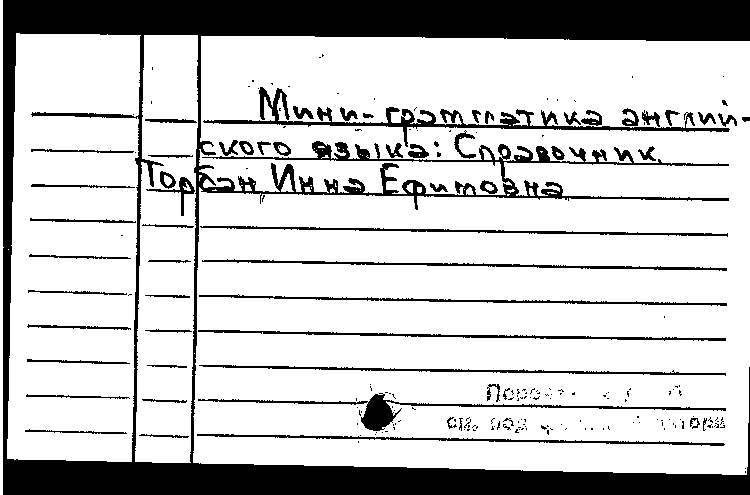 Мини-грамматика англий-
ского языка: Справочник.
Торбан Инна Ефимовна
см. под